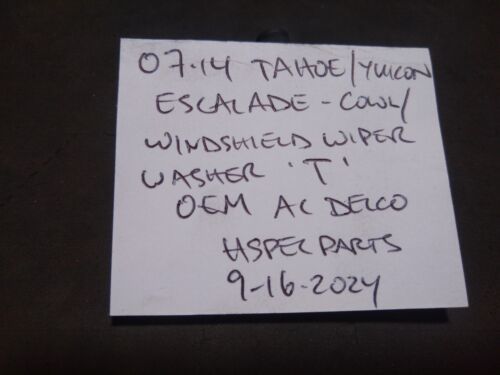 07-14 TAHOE/YUKON
ESCALADE - COWL/
WINDSHIELD WIPER
WASHER 'T'
OEM AC DELCO
HSPEC PARTS
9-16-2024